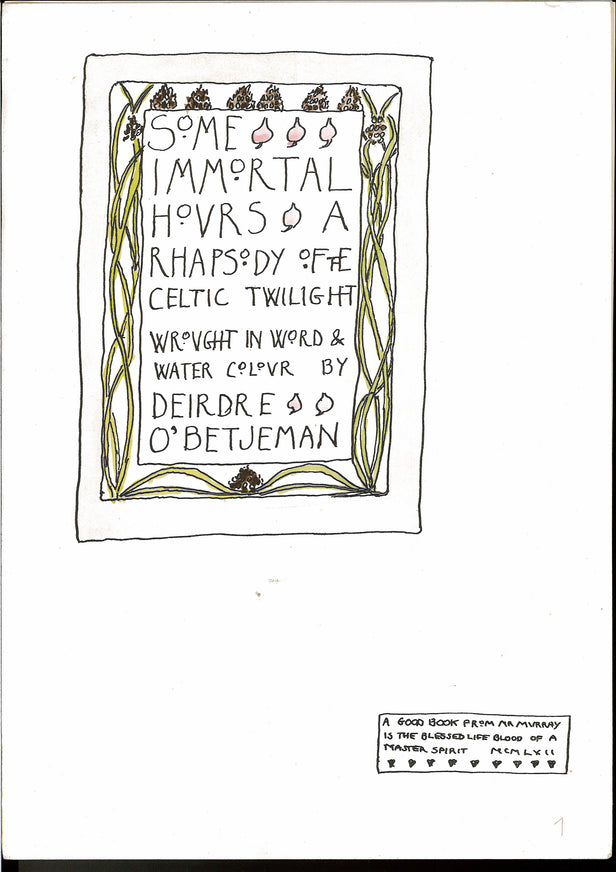 SOME
IMMORTAL
HOVRS A
RHAPSODY OF THE
CELTIC TWILIGHT
WROVGHT IN WORD &
WATER COLOVR BY
DEIRDRE
O'BETJEMAN
A GOOD BOOK FROM MR MURRAY
IS THE BLESSED LIFE BLOOD OF A
MASTER SPIRIT MCMLXII
1